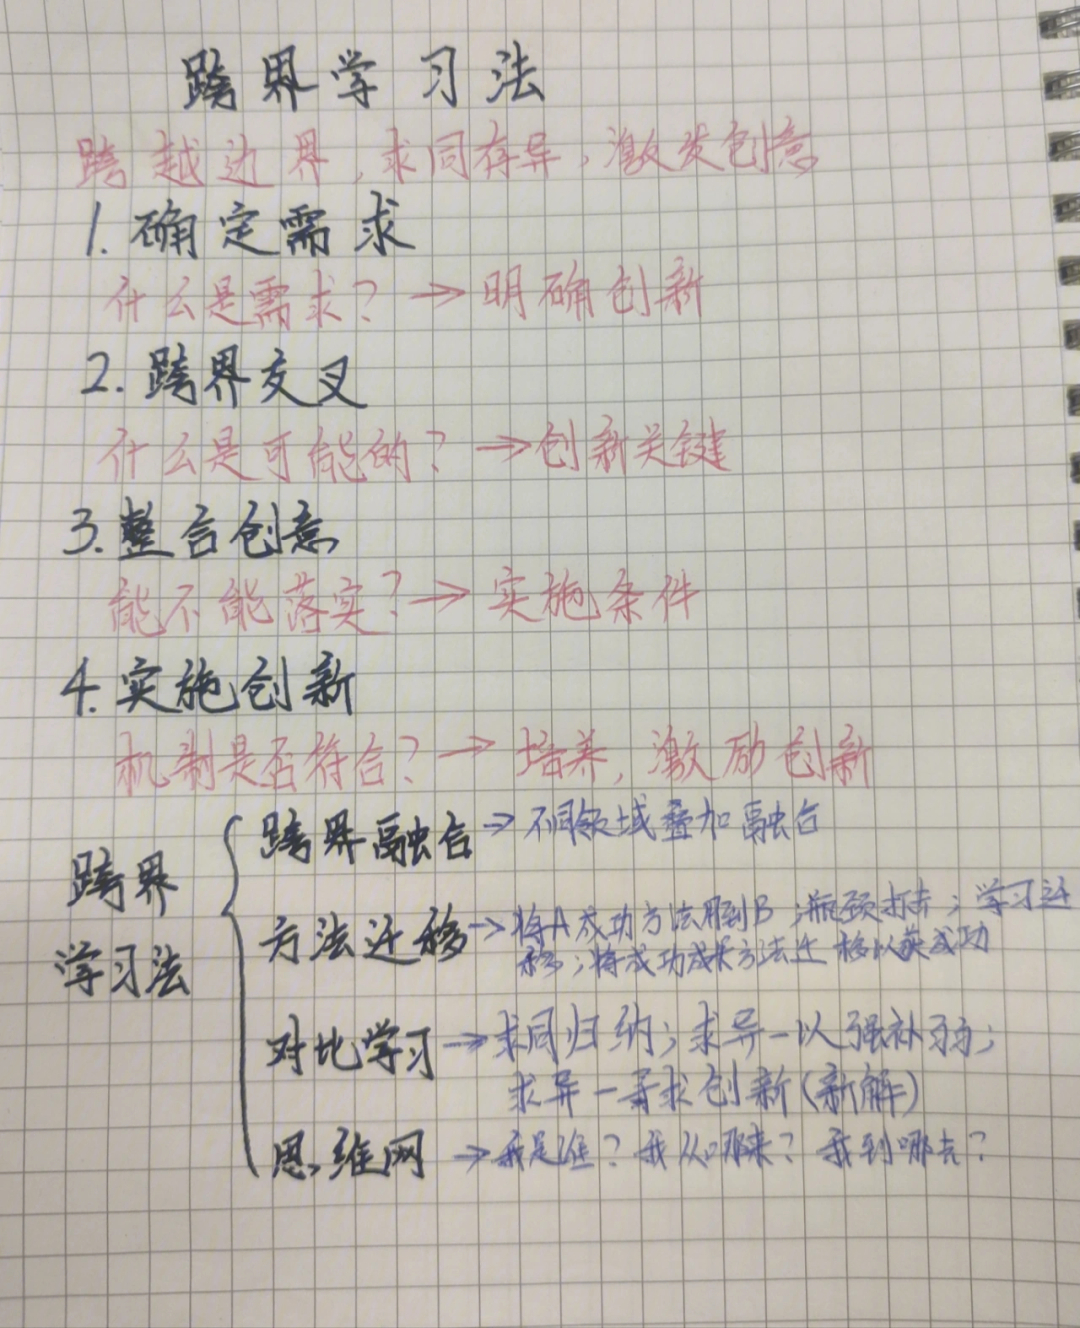 跨界学习法
跨越边界,求同存异,激发创意
1.确定需求
什么是需求?→明确创新
2.跨界交叉
什么是可能的?→创新关键
3.整合创意
能不能落实?→实施条件
4.实施创新
机制是否符合?→培养,激励创新
跨界学习法
跨界融合→不同领域叠加融合
方法迁移→将A成功方法用到B;瓶颈打击;学习迁
移;将成功成长方法迁移以获成功
对比学习→求同归纳;求异-以强补弱;
求异-寻求创新(新解)
思维网→我是谁?我从哪来?我到哪去?